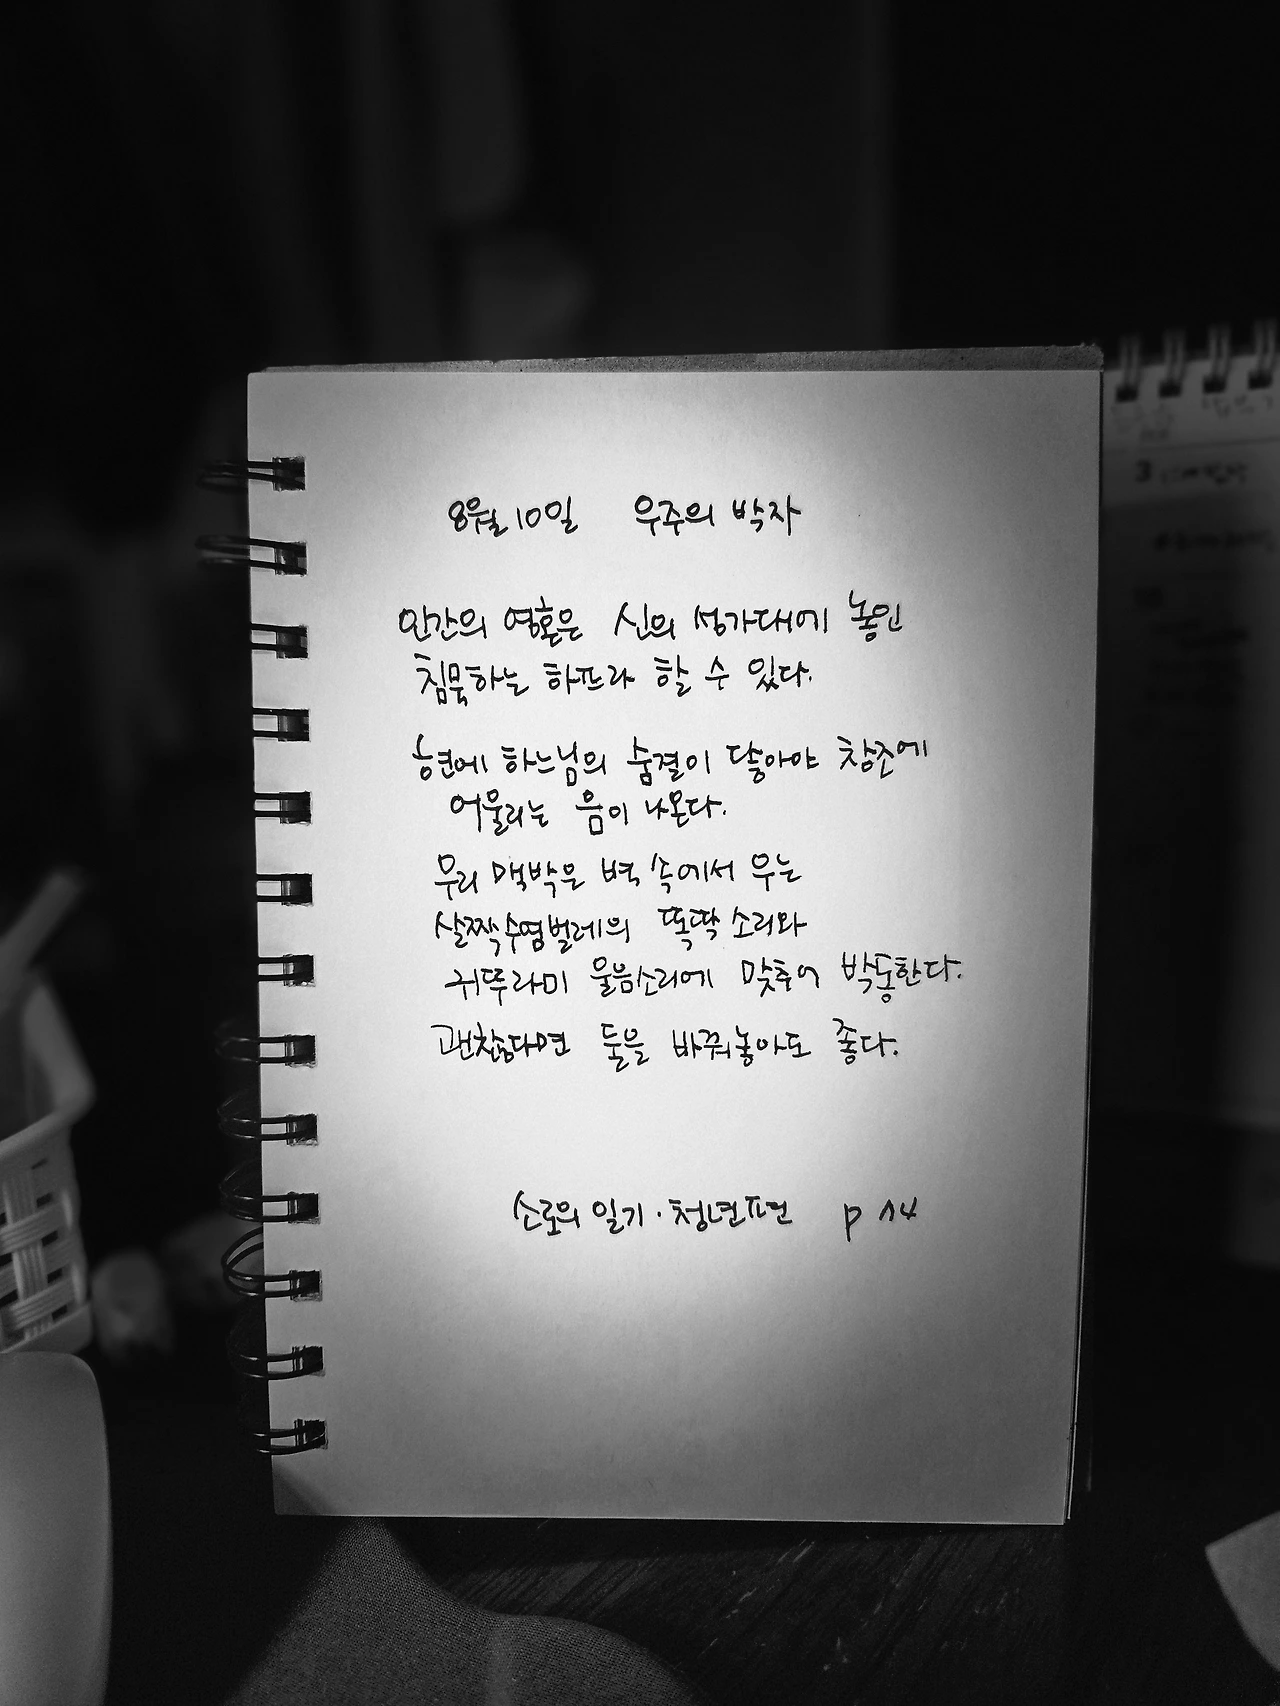 8월 10일 우주의 박자
인간의 영혼은 신의 성가대에 놓인
침묵하는 하프라 할 수 있다.
현에 하느님의 숨결이 닿아야 창조에
어울리는 음이 나온다.
우리 맥박은 벽 속에서 우는
살짝수염벌레의 똑딱 소리와
귀뚜라미 울음소리에 맞추어 박동한다.
괜찮다면 둘을 바꿔놓아도 좋다.
소로의 일기 · 청년편 p 14
3